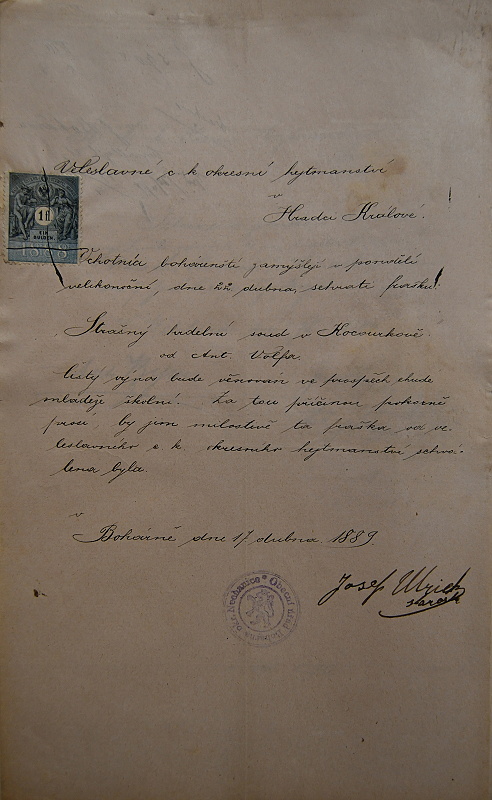 Veleslavné c k okresní hejtmanství
v
Hradci Králové.
1 fl
EIN
GULDEN
Ochotníci bohárenští zamýšlejí v pondělí
velikonoční, dne 22 dubna, sehrati frašku:
Strašný hrdelní soud v Kocourkově
od Ant. Volfa.
Čistý výnos bude věnován ve prospěch chudé
mládeže školní. Za tou příčinou pokorně
prosí, by jim milostivě ta fraška od ve-
leslavného c. k. okresního hejtmanství schvá-
lena byla.
V
Bohárně dne 17 dubna 1889.
Josef
starosta
Obecní úřad Boharna okr. Nechanice